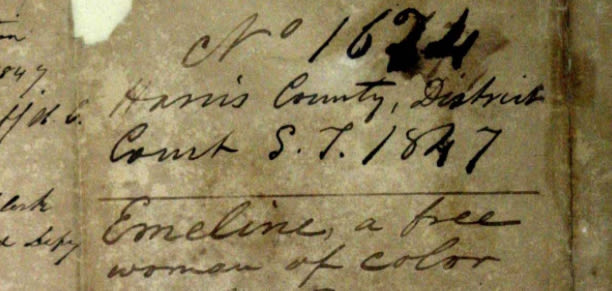 No 1624
Harris County, District
Court S. T. 1847
Emeline, a free
woman of color